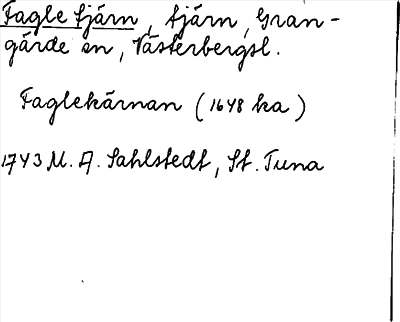 Fagle tjärn, tjärn, Gran-
gärde sn, Västerbergsl.
Faglekärnan (1648 ka)
1743 M. A. Sahlstedt, St. Tuna